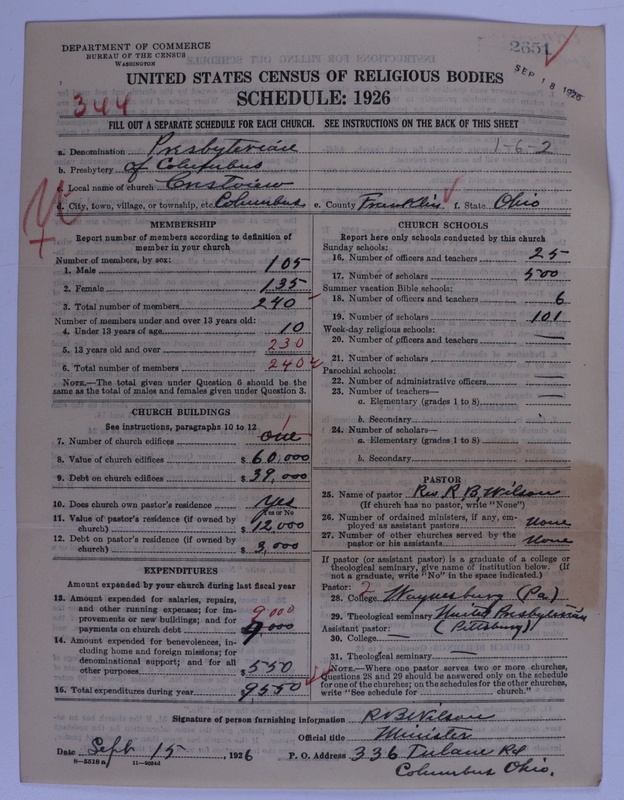 DEPARTMENT OF COMMERCE
BUREAU OF THE CENSUS
WASHINGTON
2651
SEP 18 1926
UNITED STATES CENSUS OF RELIGIOUS BODIES
SCHEDULE: 1926
344
FILL OUT A SEPARATE SCHEDULE FOR EACH CHURCH. SEE INSTRUCTIONS ON THE BACK OF THIS SHEET
a. Denomination Presbyterian 1-6-2
b. Presbytery of Columbus
c. Local name of church Crestview
d. City, town, village, or township, etc. Columbus e. County Franklin f. State Ohio
MEMBERSHIP
Report number of members according to definition of
member in your church
Number of members, by sex:
1. Male 105
2. Female 135
3. Total number of members 240
Number of members under and over 13 years old:
4. Under 13 years of age 10
5. 13 years old and over 230
6. Total number of members 240
NOTE.—The total given under Question 6 should be
same as the total of males and females given under Question 3.
CHURCH BUILDINGS
See instructions, paragraphs 10 to 12
7. Number of church edifices one
8. Value of church edifices $ 60,000
9. Debt on church edifices $ 39,000
10. Does church own pastor's residence yes
Yes or No
11. Value of pastor's residence (if owned by
church) $ 12,000
12. Debt on pastor's residence (if owned by
church) $ 3,000
EXPENDITURES
Amount expended by your church during last fiscal year
13. Amount expended for salaries, repairs,
and other running expenses; for im-
provements or new buildings; and for
payments on church debt 9,000
$ 9000
14. Amount expended for benevolences, in-
cluding home and foreign missions; for
denominational support; and for all
other purposes $ 550
15. Total expenditures during year $ 9550
CHURCH SCHOOLS
Report here only schools conducted by this church
Sunday schools:
16. Number of officers and teachers 25
17. Number of scholars 500
Summer vacation Bible schools:
18. Number of officers and teachers 6
19. Number of scholars 101
Week-day religious schools:
20. Number of officers and teachers —
21. Number of scholars —
Parochial schools:
22. Number of administrative officers —
23. Number of teachers—
a. Elementary (grades 1 to 8) —
b. Secondary
24. Number of scholars—
a. Elementary (grades 1 to 8) —
b. Secondary —
PASTOR
25. Name of pastor Rev. R. B. Wilson
(If church has no pastor, write "None")
26. Number of ordained ministers, if any, em-
ployed as assistant pastors none
27. Number of other churches served by the
pastor or his assistants none
If pastor (or assistant pastor) is a graduate of a college or
theological seminary, give name of institution below. (If
not a graduate, write "No" in the space indicated.)
Pastor: 2
28. College Waynesburg (Pa)
29. Theological seminary United Presbyterian
Assistant pastor: (Pittsburg)
30. College —
31. Theological seminary —
NOTE.—Where one pastor serves two or more churches,
Questions 28 and 29 should be answered only on the schedule
for one of the churches; on the schedules for the other churches,
write "See schedule for church."
Signature of person furnishing information R B Wilson
Official title Minister
Date Sept 15, 1926 P. O. Address 336 Tulane Rd
8—5518a 11—9034d Columbus Ohio.